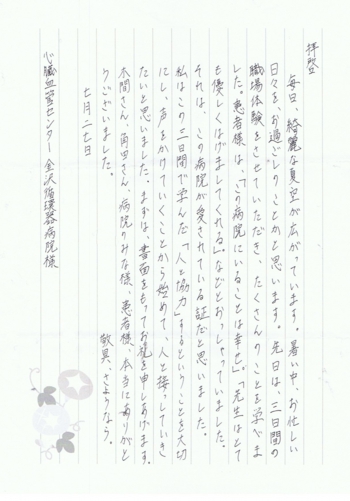 拝啓
毎日、綺麗な夏空が広がっています。暑い中、お忙しい
日々を、お過ごしのことかと思います。先日は、三日間の
職場体験をさせていただき、たくさんのことを学べま
した。患者様は、「この病院にいることは幸せ」。「先生はとて
も優しくはげましてくれる」。などとおっしゃっていました。
それは、この病院が愛されている証だと思いました。
私はこの三日間で学んだ「人と協力」するということを大切
にし、声をかけていくことから始めて、人と接していき
たいと思いました。まずは、書面をもってお礼を申しあげます。
木間さん、角田さん、病院のみな様、患者様、本当にありがと
うございました。
敬具、さようなら。
七月二十七日
心臓血管センター 金沢循環器病院様